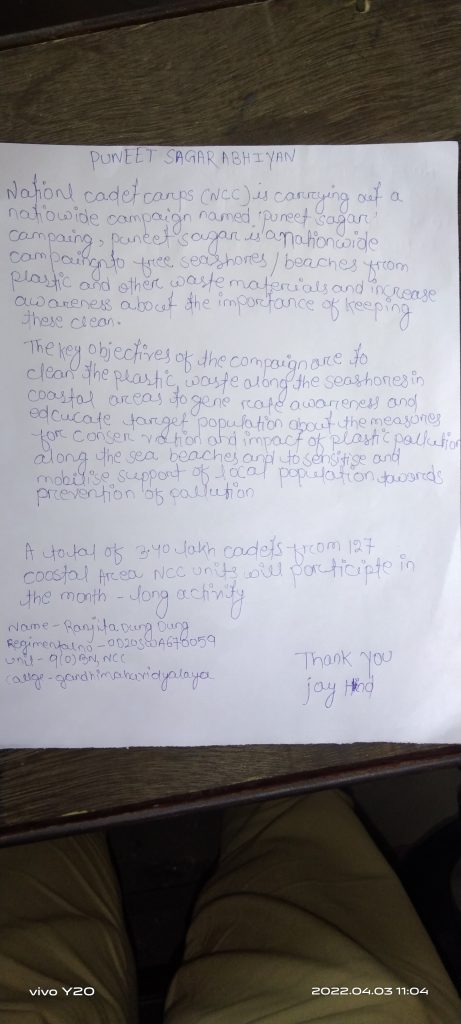 PUNEET SAGAR ABHIYAN
Nationl cadet carps (NCC) is carrying out a
natiowide campaign named 'puneet sagar'
campaing, puneet sagar is a nationwide
campaingto free seashores / beaches from
plastic and other waste materials and increase
awareness about the importance of keeping
these clean.
The key objectives of the compaign are to
clean the plastic waste along the seashores in
coastal areas to gene rate awareness and
edcucate target population about the measores
for conser vation and impact of plastic pollution
along the sea beaches and to sensitise and
mobilise support of local population towords
prevention of pollution
A total of 3.40 lakh cadets from 127
coostal Area NCC units will participte in
the month - long activity
Name - Ranjita Dung Dung
Regimental no -
unit - 9(O)BN, NCC
Thank You
jay Hind
vivo Y20
2022.04.03 11:04